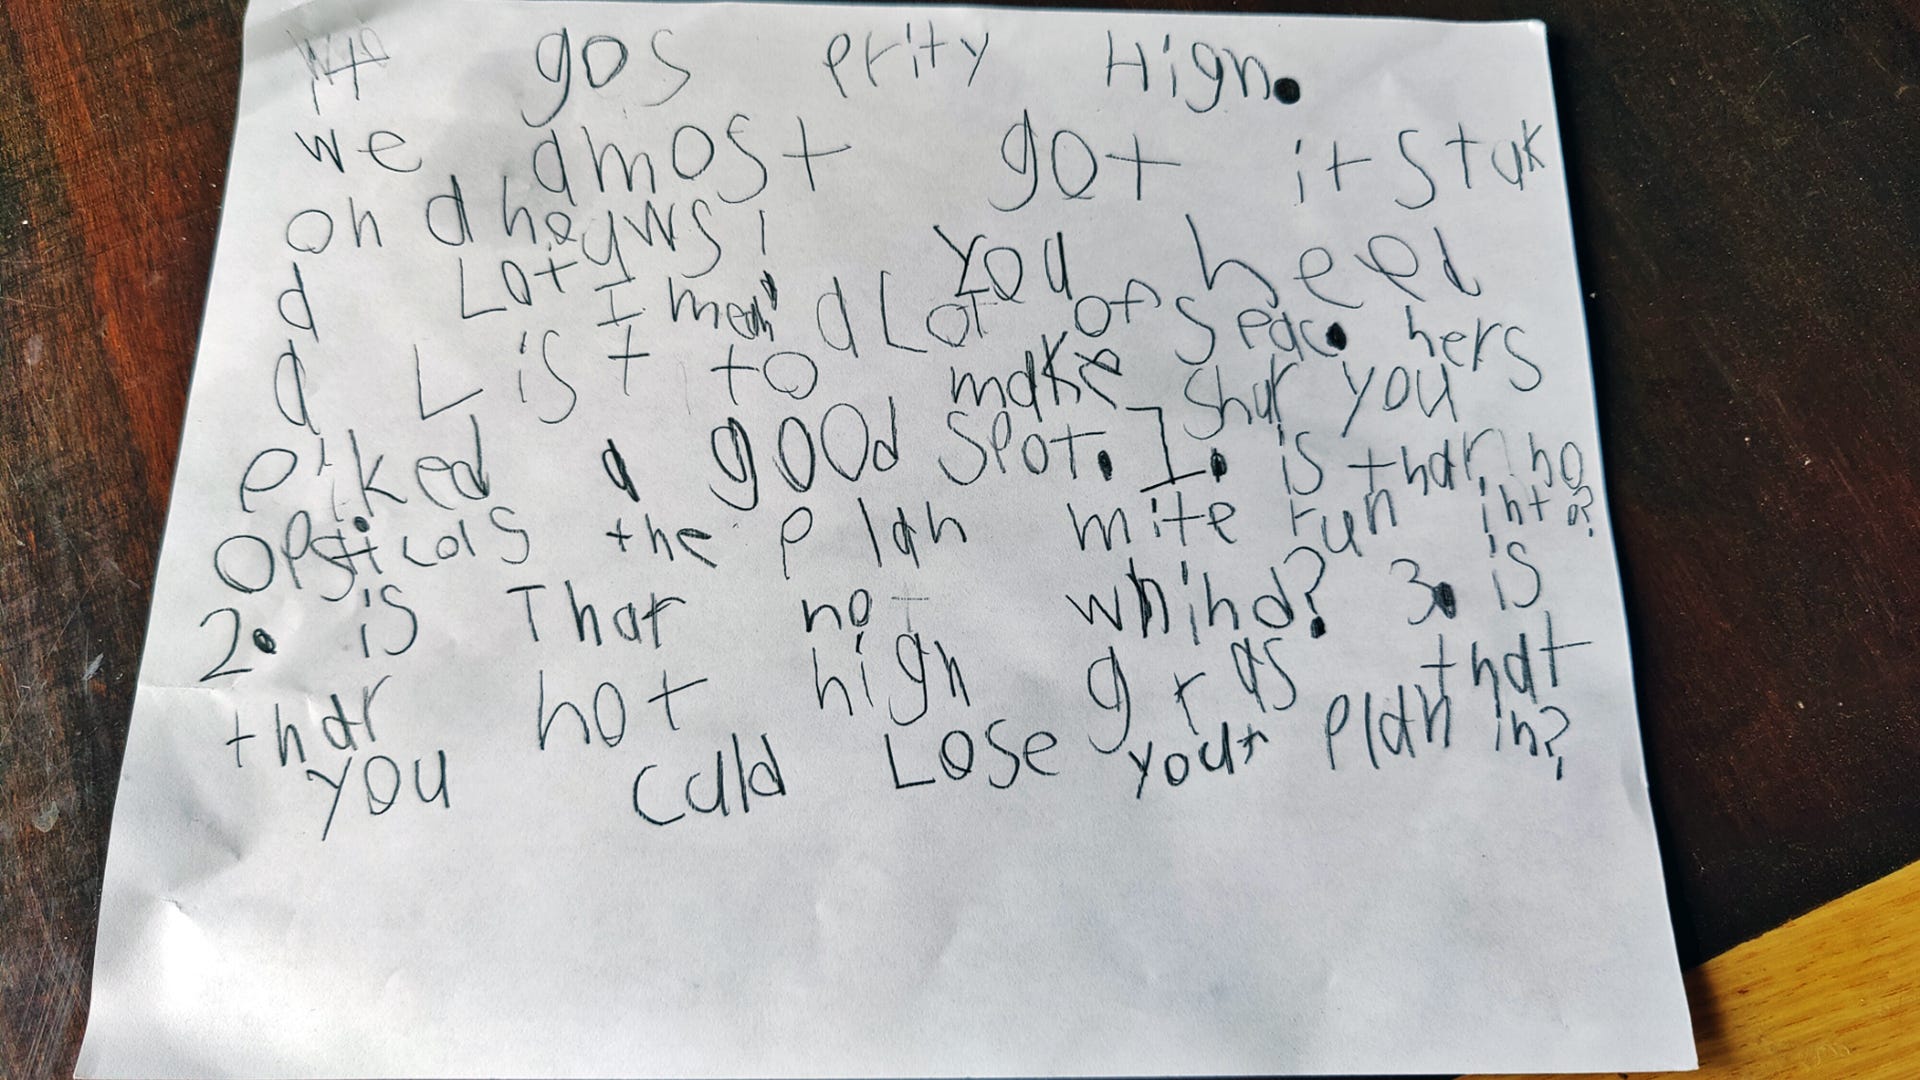 It gos prity High.
we amost got it stuk
on a heyws! You need
a Lot I mean a Lot of speac. hers
a List to make shur you
piked a good spot. 1. is thar no
opsticals the plan mite run into?
2. is Thar not whind? 3. is
thar not high gras that
you culd Lose your plan in?